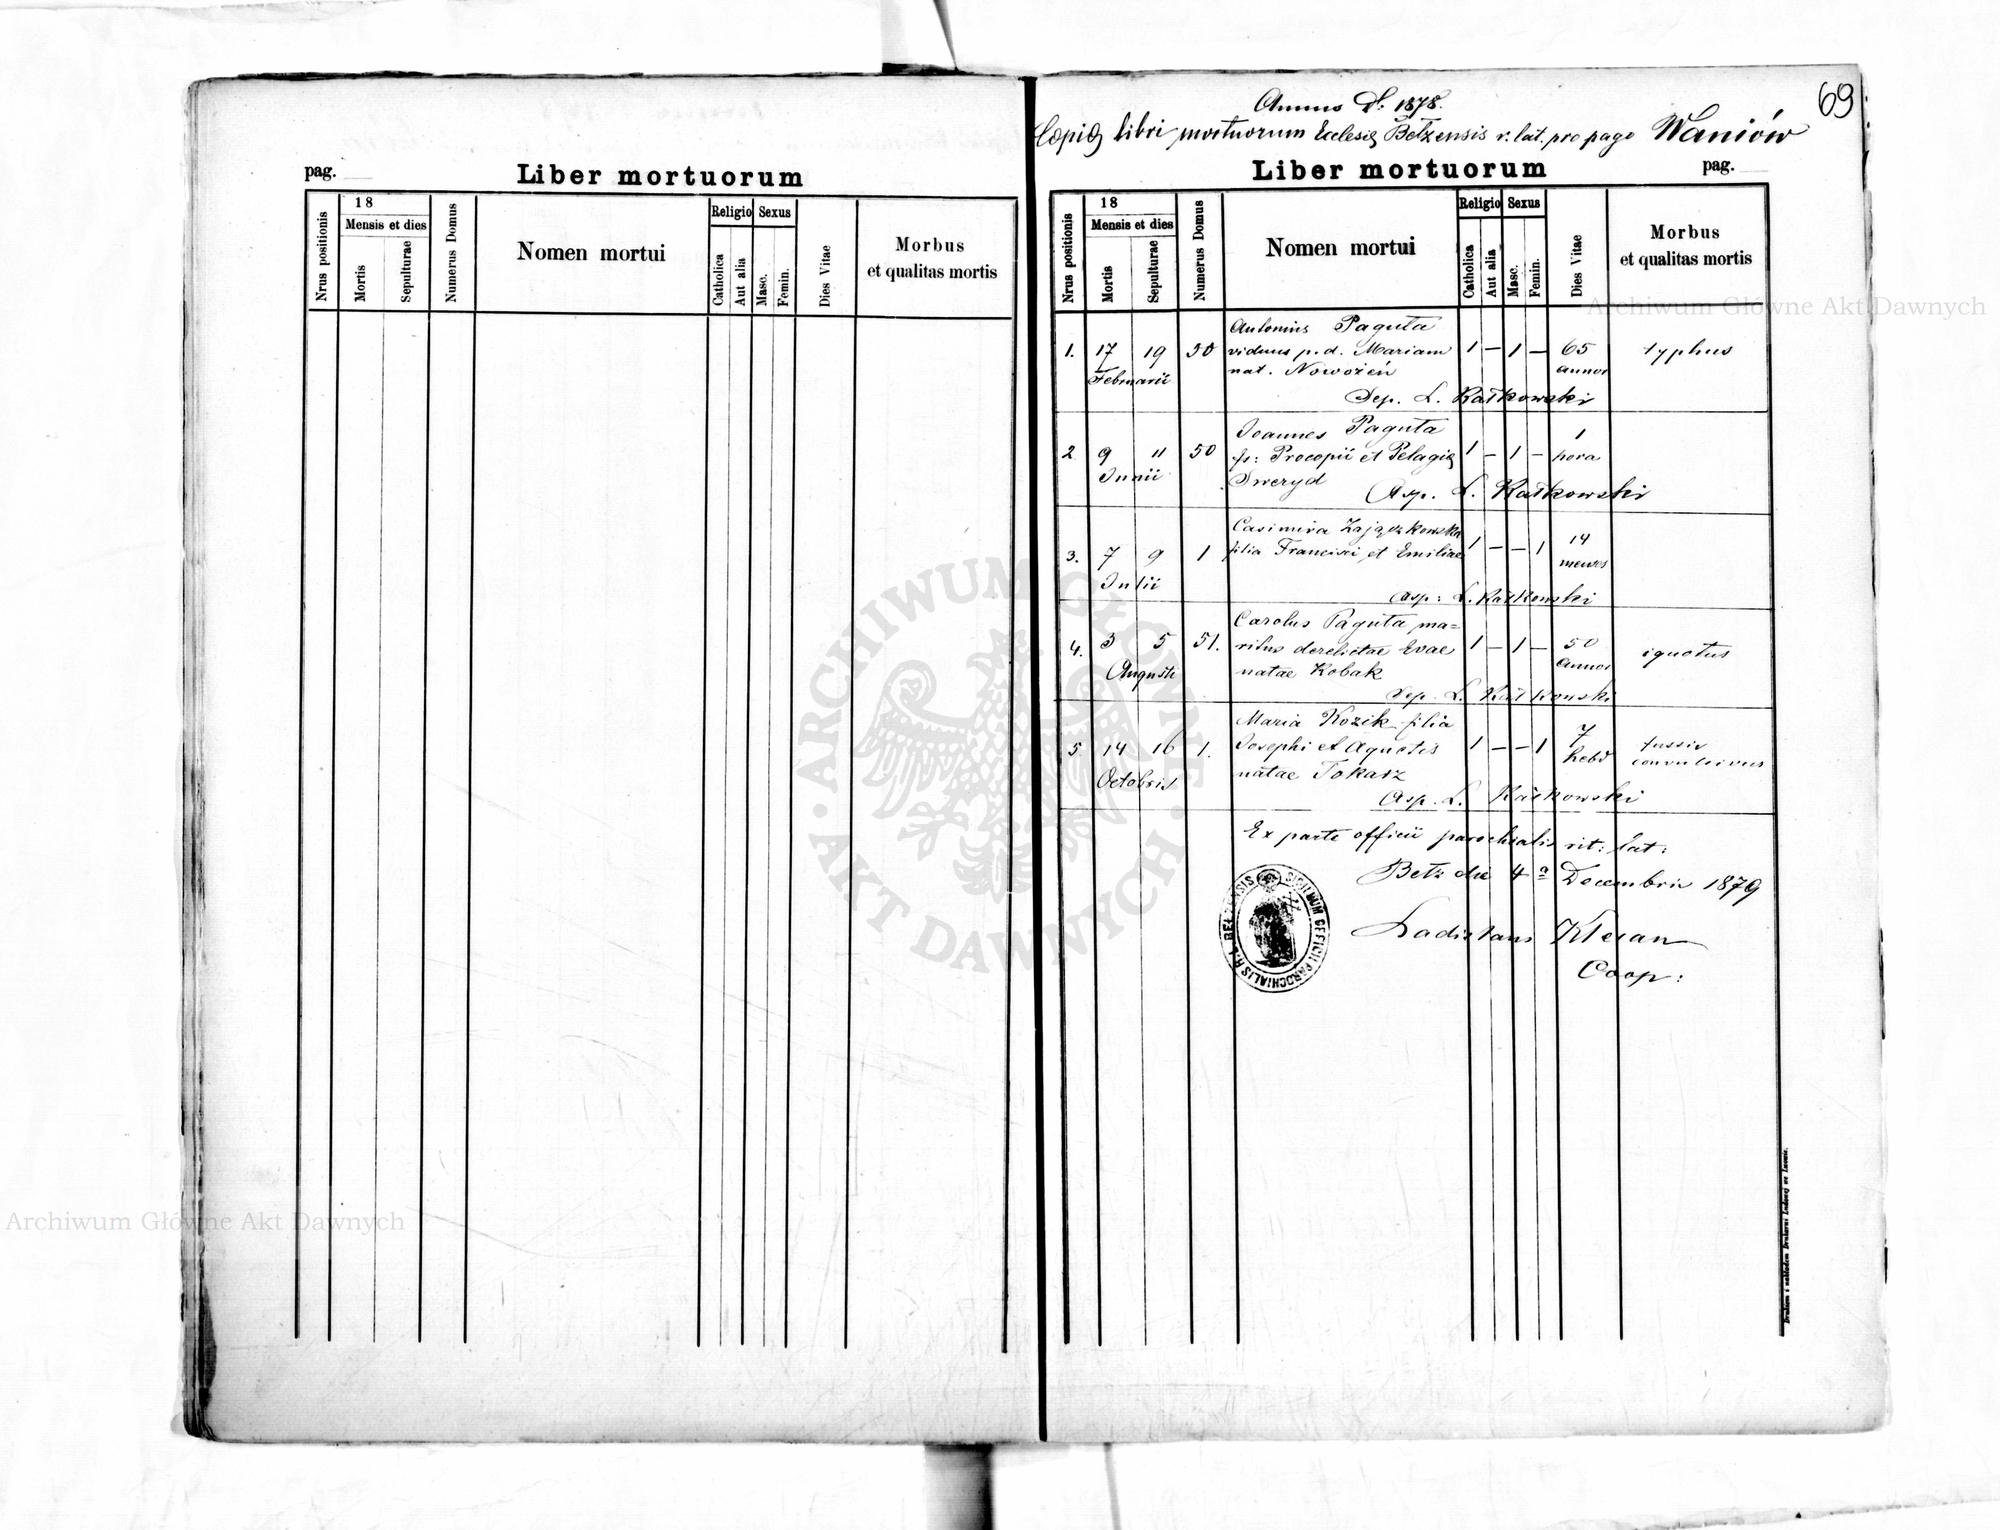 pag.
Liber mortuorum
Nrus positionis
18
Mensis et dies
Mortis
Sepulturae
Numerus Domus
Nomen mortui
Religio
Catholica
Aut alia
Sexus
Masc.
Femin.
Dies Vitae
Morbus
et qualitas mortis
69
Annus D. 1878.
Copia libri mortuorum Ecclesię Bełzensis r. lat. pro pago Waniów
Liber mortuorum
pag.
Nrus positionis
18
Mensis et dies
Mortis
Sepulturae
Numerus Domus
Nomen mortui
Religio
Catholica
Aut alia
Sexus
Masc.
Femin.
Dies Vitae
Morbus
et qualitas mortis
Antonius Paguta
1. 17 19 50 viduus p. d. Mariam 1 – 1 – 65 typhus
Februarii nat. Nowożeń annos
Sep. L. Ratkowski
Joannes Paguta 1
2 9 11 50 fs: Procopii et Pelagię 1 – 1 – hora
Junii Sweryd
Asp. L. Ratkowski
Casimira Zajączkowska 14
3. 7 9 1 filia Francisci et Emiliae 1 – – 1 menses
Julii
Asp: L. Ratkowski
Carolus Paguta ma=
4. 3 5 51. ritus derelictae Evae 1 – 1 – 50 ignotus
Augusti natae Kobak annos
Sep. L. Ratkowski
Maria Kozik filia 7
5 14 16 1. Josephi et Agnetis 1 – – 1 hebd tussis
Octobris natae Tokarz convulsivus
Asp. L. Ratkowski
Ex parte officii parochialis rit: lat:
Bełz die 4a Decembris 1879
Ladislaus
Coop:
SIGILLUM OFFICII PAROCHIALIS R. L. BELZENSIS
Drukiem i nakładem Drukarni Ludowej we Lwowie.
Archiwum Główne Akt Dawnych
Archiwum Główne Akt Dawnych
ARCHIWUM GŁÓWNE · AKT DAWNYCH ·